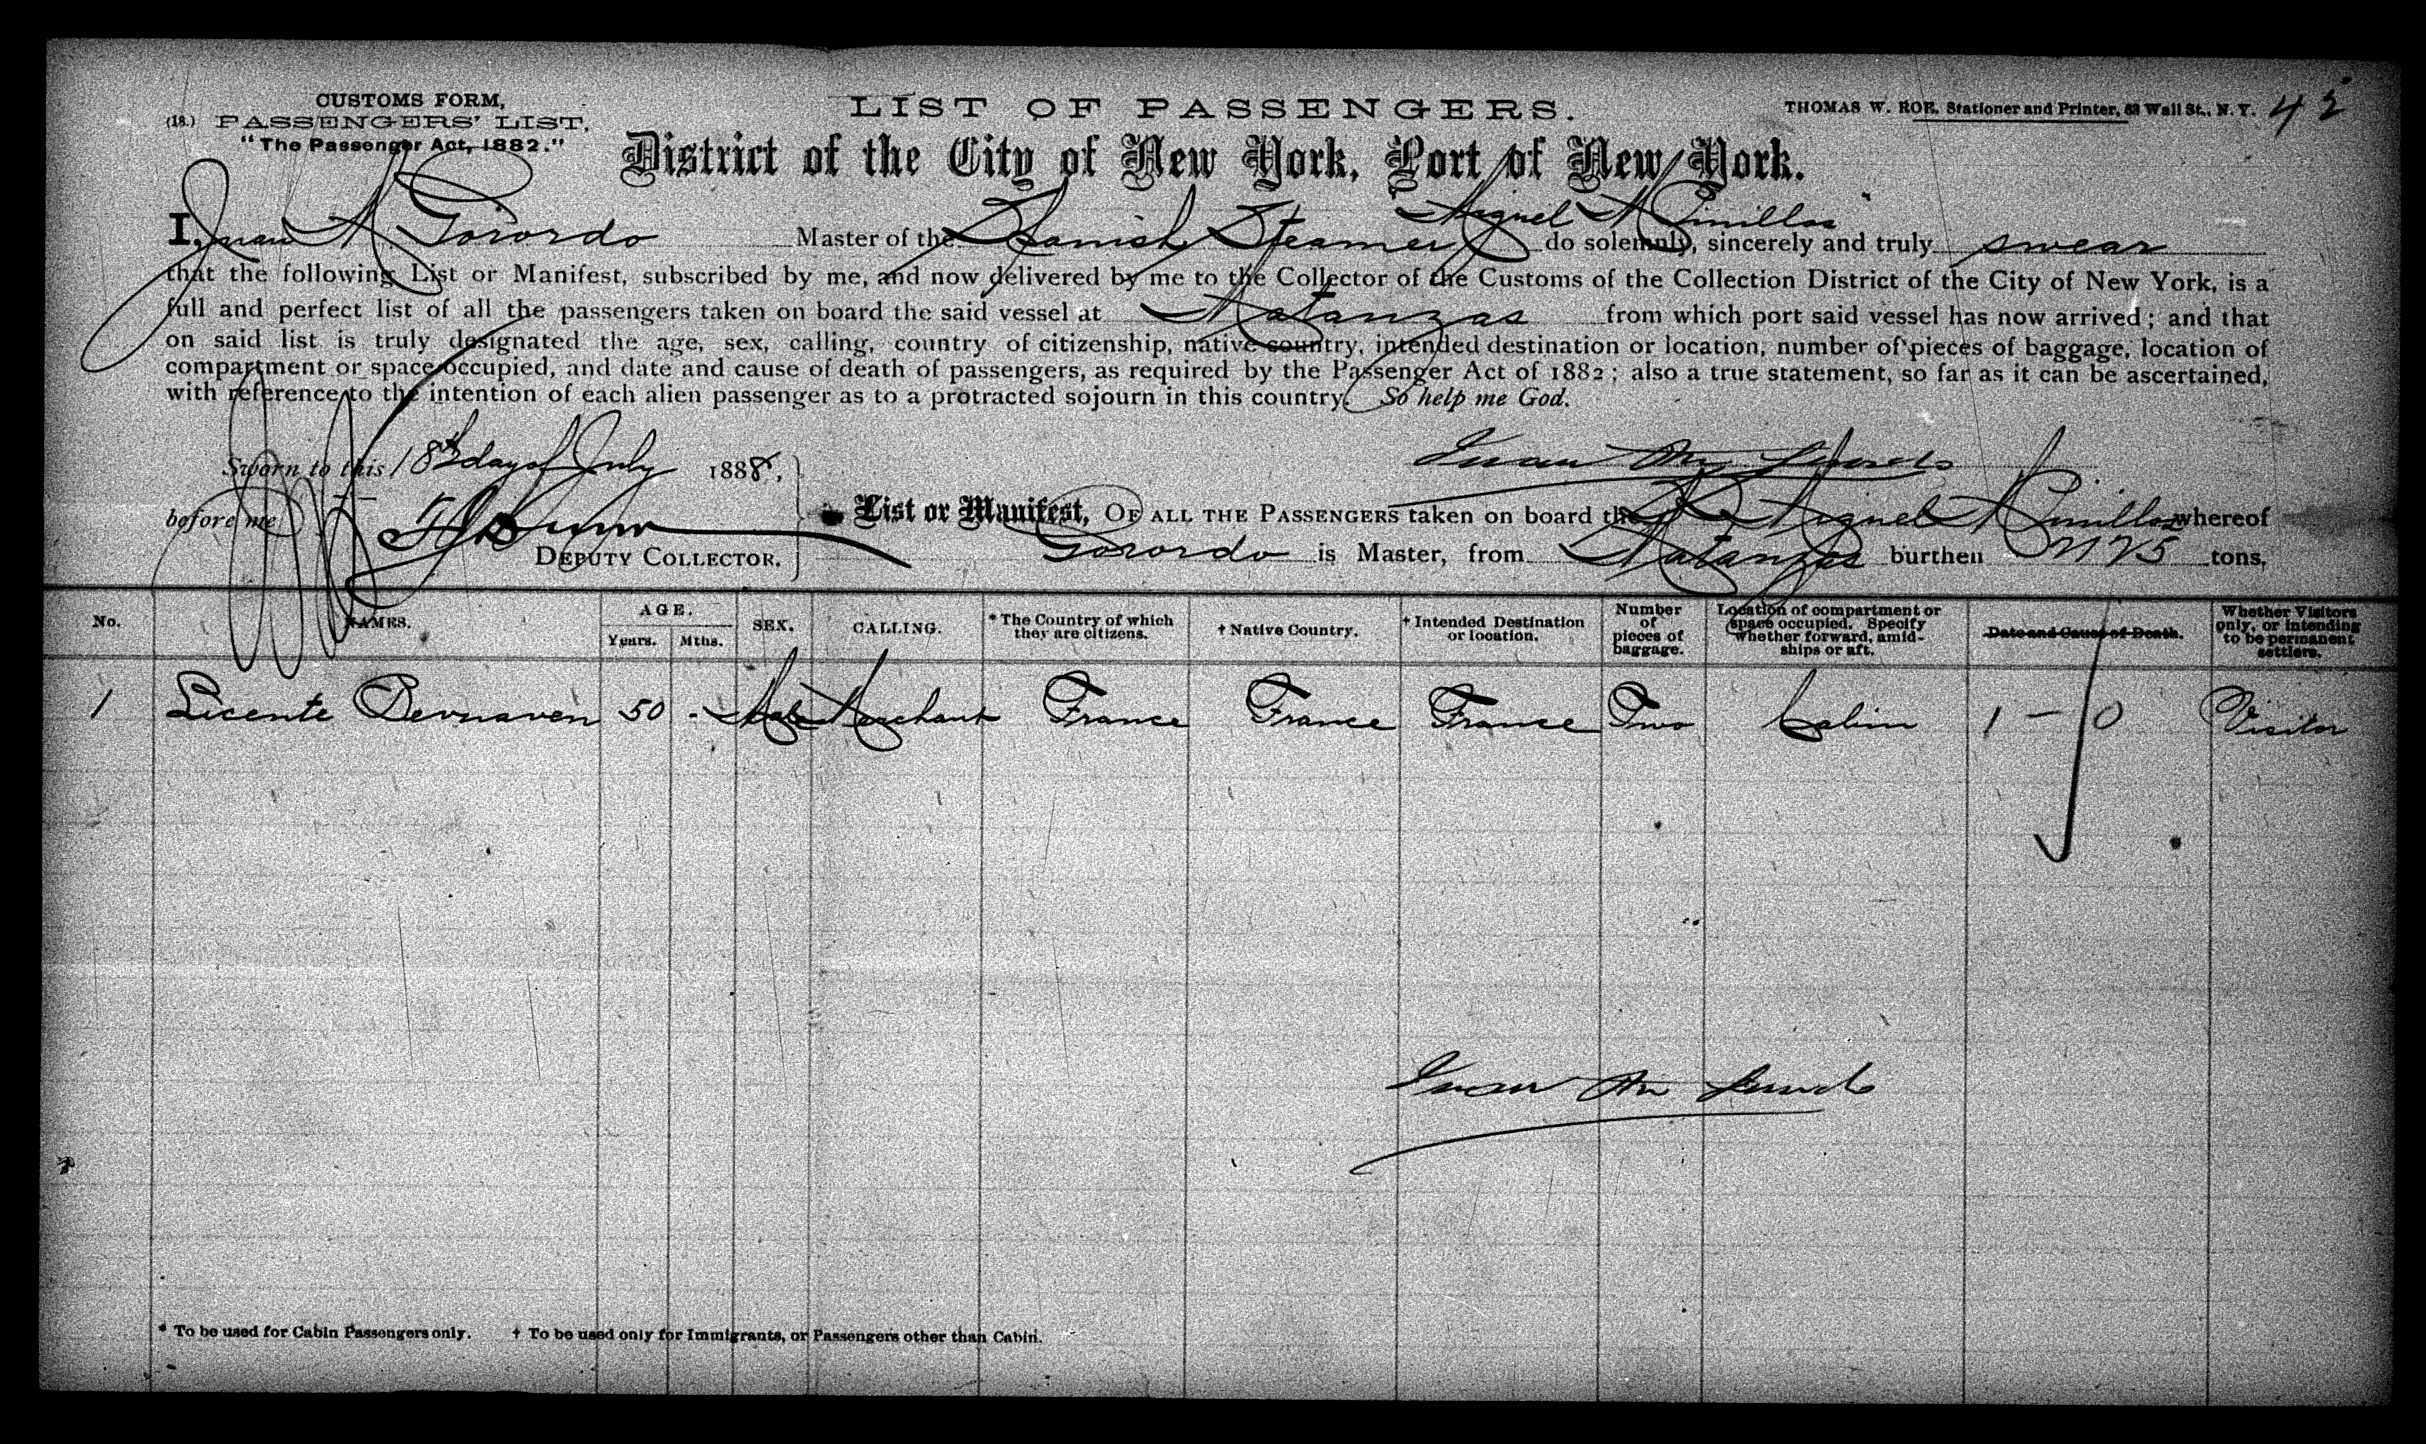 CUSTOMS FORM,
(18.) PASSENGERS' LIST,
"The Passenger Act, 1882."
LIST OF PASSENGERS.
THOMAS W. ROE, Stationer and Printer, 63 Wall St., N. Y.
District of the City of New York, Port of New York.
I, Juan A Gorordo Master of the Spanish Steamer Miguel M Pinillos do solemnly, sincerely and truly swear
that the following List or Manifest, subscribed by me, and now delivered by me to the Collector of the Customs of the Collection District of the City of New York, is a
full and perfect list of all the passengers taken on board the said vessel at Matanzas from which port said vessel has now arrived; and that
on said list is truly designated the age, sex, calling, country of citizenship, native country, intended destination or location, number of pieces of baggage, location of
compartment or space occupied, and date and cause of death of passengers, as required by the Passenger Act of 1882; also a true statement, so far as it can be ascertained,
with reference to the intention of each alien passenger as to a protracted sojourn in this country. So help me God.
Sworn to this 18th day of July 1888,
before me
DEPUTY COLLECTOR.
List or Manifest, OF ALL THE PASSENGERS taken on board the Miguel M Pinillos whereof
Gorordo is Master, from Matanzas burthen tons,
No.
NAMES.
AGE.
Years. Mths.
SEX.
CALLING.
* The Country of which they are citizens.
† Native Country.
† Intended Destination or location.
Number of pieces of baggage.
Location of compartment or space occupied. Specify whether forward, amidships or aft.
Date and Cause of Death.
Whether Visitors only, or intending to be permanent settlers.
1 50 - Male Merchant France France France Two Cabin 1 - 0 Visitor
* To be used for Cabin Passengers only. † To be used only for Immigrants, or Passengers other than Cabin.